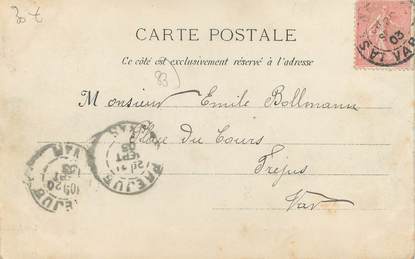 30 €
CARTE POSTALE
Ce côté est exclusivement réservé à l'adresse
83
Monsieur Emile Bollmann
Place du Cours
Fréjus
Var
LAS
VAR
03
FRÉJUS
VAR
SEPT
03
FRÉJUS
VAR
SEPT
03